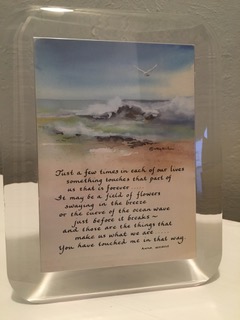 Just a few times in each of our lives
something touches that part of
us that is forever
It may be a field of flowers
swaying in the breeze
or the curve of the ocean wave
just before it breaks ~
and these are the things that
make us what we are
You have touched me in that way.